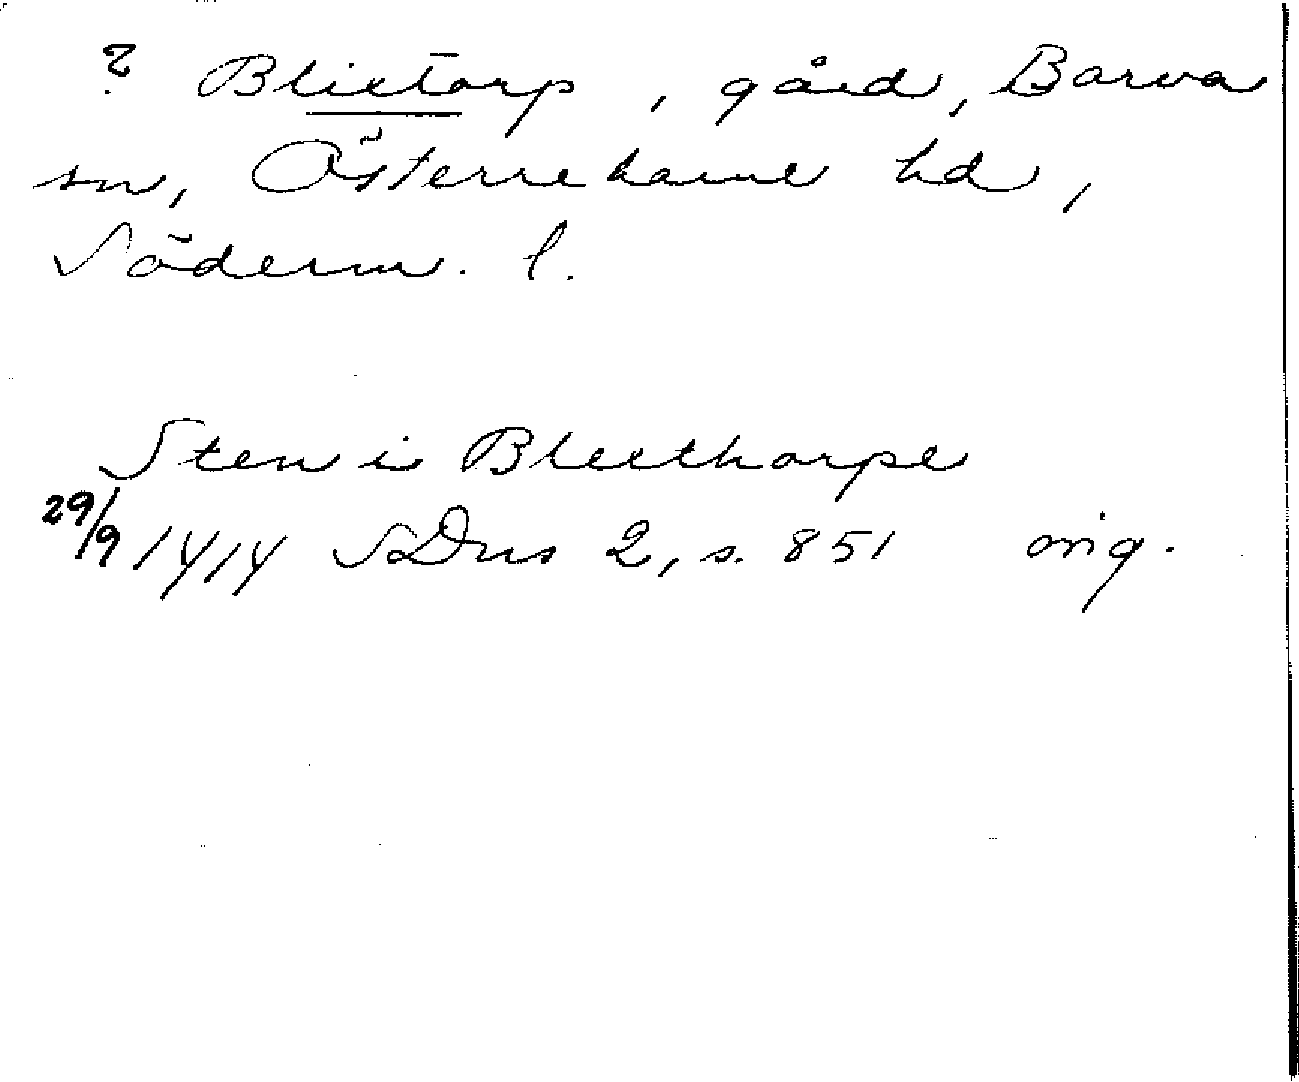 ? Blixtorp, gård, Barva
sn, Österrekarne hd,
Söderm. l.
Sten i Blexthorpe
29/9 1414 SDns 2, s. 851 orig.